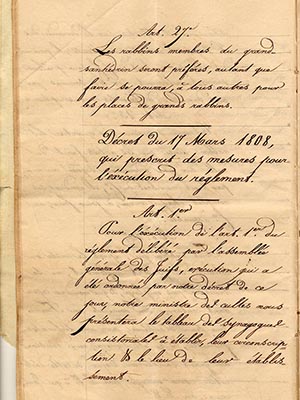 Art. 27e
Les rabbins membres du grand-
sanhédrin seront préférés, autant que
faire se pourra, à tous autres pour
les places de grands rabbins.
Décret du 17 Mars 1808,
qui prescrit des mesures pour
l'exécution du règlement.
Art. 1er
Pour l'exécution de l'art. 1er du
règlement délibéré par l'assemblée
générale des juifs, exécution qui a
été ordonnée par notre décret de ce
jour, notre ministre des cultes nous
présentera le tableau des synagogues
consistoriales à établir, leur circonscrip
tion & le lieu de leur établis
sement.